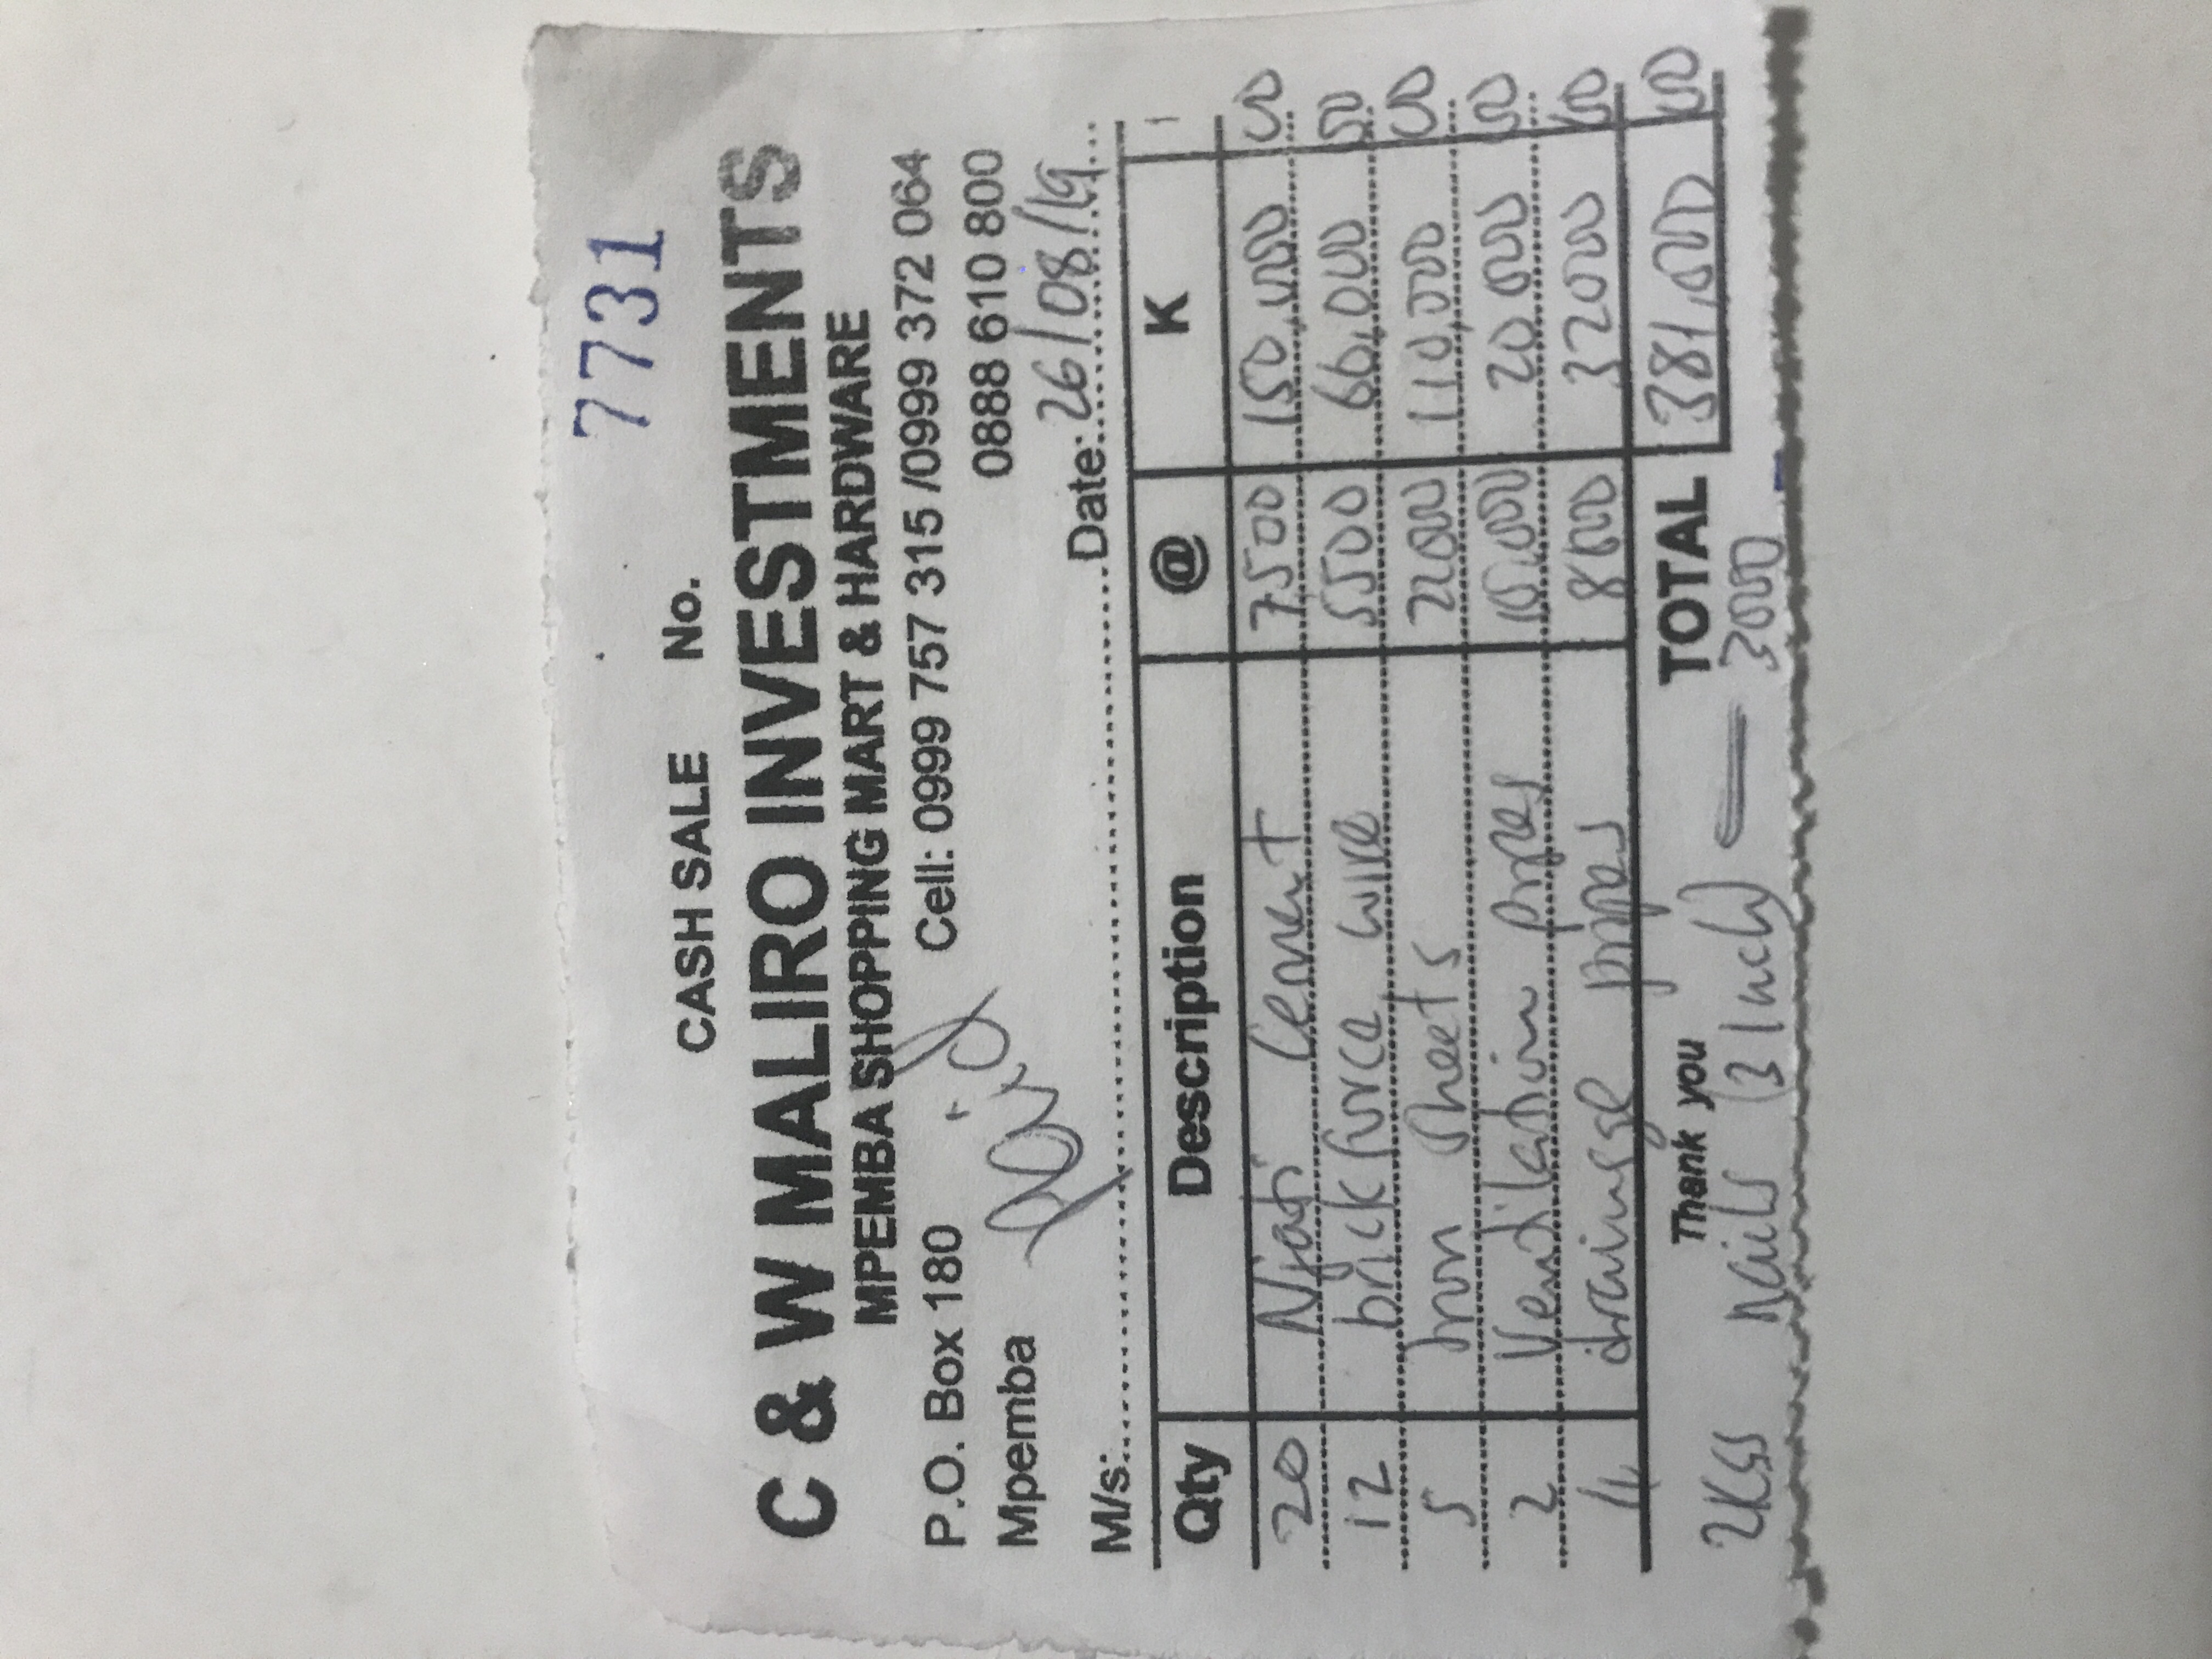 7731
CASH SALE No.
C & W MALIRO INVESTMENTS
MPEMBA SHOPPING MART & HARDWARE
P.O. Box 180 Cell: 0999 757 315 /0999 372 064
Mpemba Paid 0888 610 800
M/s: Date: 26/08/19
Qty Description @ K
20 Njati Cement 7,500 150,000 00
12 brick force wire 5500 66,000 00
5 Iron Sheets 22000 110,000 00
2 Vendilation pipes 10,000 20 000 00
4 drainage pipes 8000 32000 00
Thank you TOTAL 381,000 00
2KGs Nails (3 Inch) — 3000